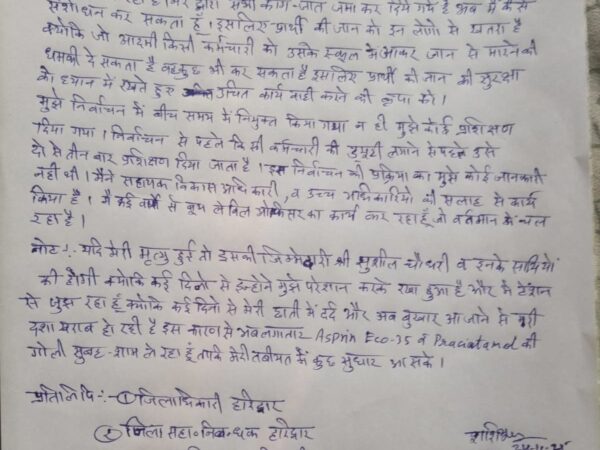 रहा है। मेरे द्वारा सभी कागजात जमा कर दिये गये है अब मैं कैसे
संशोधन कर सकता हूँ। इसलिए प्रार्थी की जान को इन लोगो से खतरा है
क्योकि जो आदमी किसी कर्मचारी को उसके स्कूल मे आकर जान से मारने की
धमकी दे सकता है वह कुछ भी कर सकता है इसलिए प्रार्थी की जान की सुरक्षा
को ध्यान में रखते हुए उचित कार्यवाही करने की कृपा करे।
मुझे निर्वाचन में बीच समय में नियुक्त किया गया न ही मुझे कोई प्रशिक्षण
दिया गया। निर्वाचन से पहले किसी कर्मचारी की ड्यूटी लगाने से पहले उसे
दो से तीन बार प्रशिक्षण दिया जाता है। इस निर्वाचन की प्रक्रिया का मुझे कोई जानकारी
नही थी। मैंने सहायक विकास अधिकारी, व उच्च अधिकारियो की सलाह से कार्य
किया है। मै कई वर्षो से बूथ लेविल ऑफिसर का कार्य कर रहा हूँ जो वर्तमान में चल
रहा है।
नोट :- यदि मेरी मृत्यु हुई तो इसकी जिम्मेदारी श्री सुशील चौधरी व इनके साथियों
की होगी क्योकि कई दिनो से इन्होने मुझे परेशान करके रखा हुआ है और मैं टेंशन
से जुझ रहा हूँ क्योकि कई दिनो से मेरी छाती में दर्द और अब बुखार आ जाने से मेरी
दशा खराब हो रही है इस कारण से अब लगातार Asprin Eco-75 व Pracatamol की
गोली सुबह-शाम ले रहा हूँ ताकि मेरी तबीयत में कुछ सुधार आ सके।
प्रतिलिपि :- ① जिलाधिकारी हरिद्वार
② जिला सहा० निबन्धक हरिद्वार